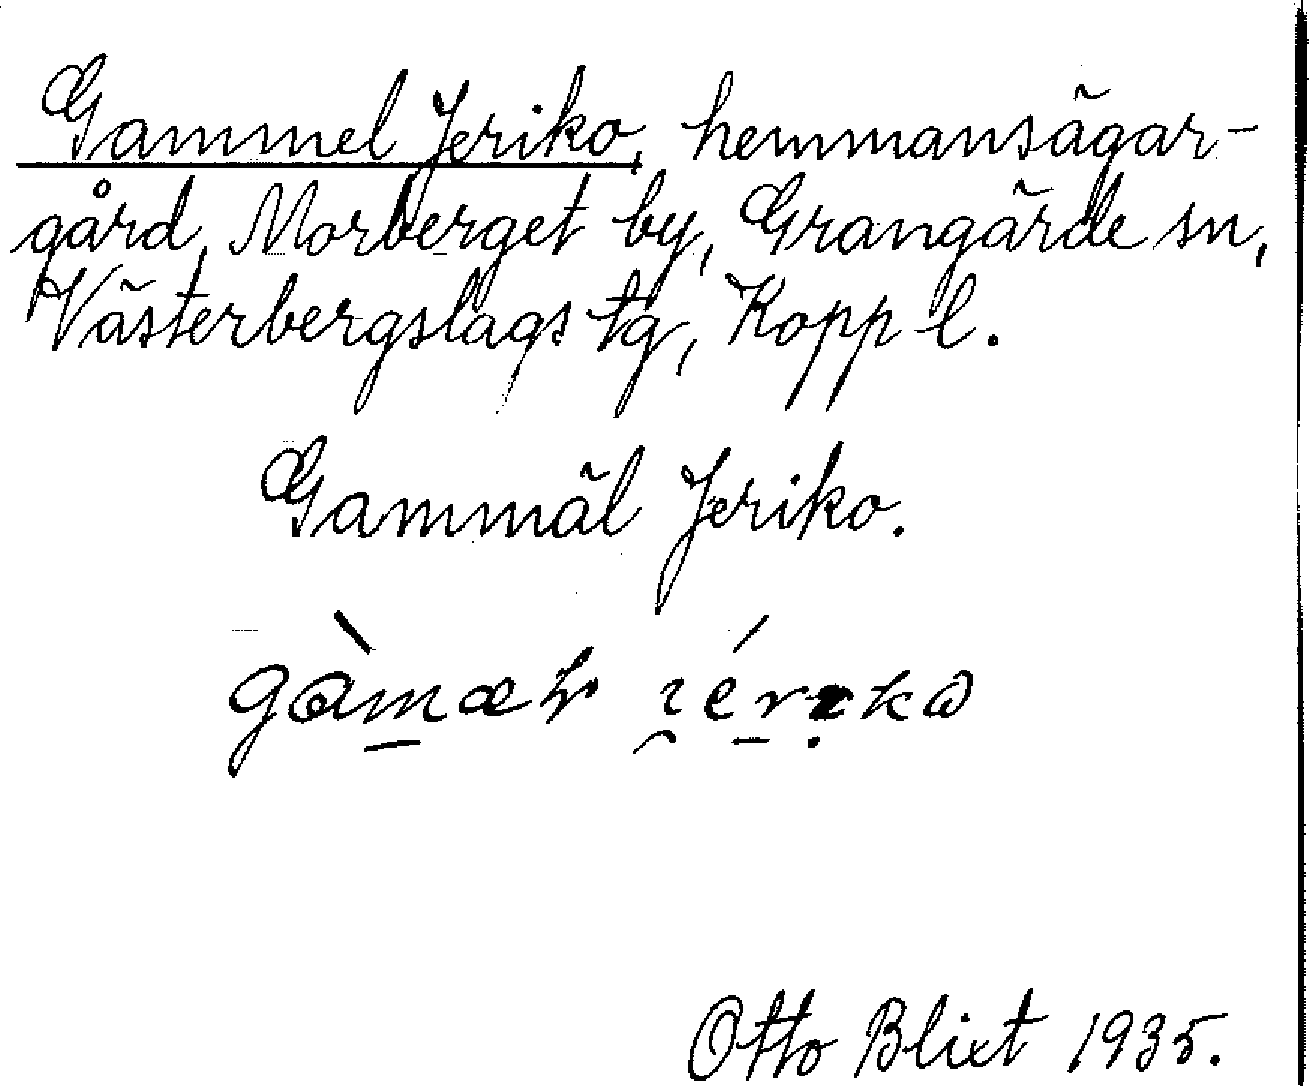 Gammel Jeriko, hemmansägar-
gård, Morberget by, Grangärde sn,
Västerbergslags tg, Kopp l.
Gammäl Jeriko.
Otto Blixt 1935.